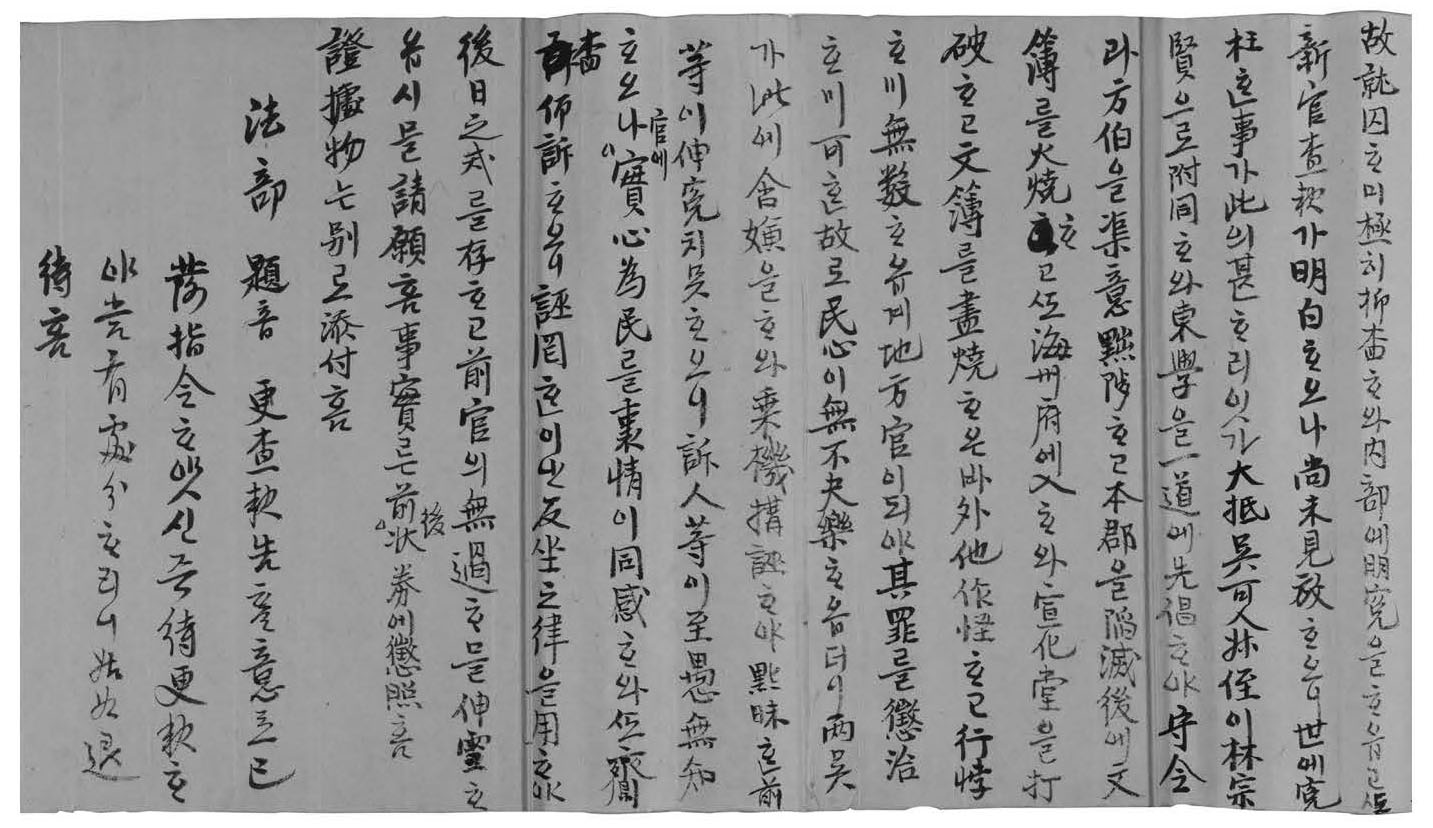 故就囚ᄒᆞ믹極히抑菀ᄒᆞ와內部에明寃을ᄒᆞ온즉
新官査欵가明白ᄒᆞ오나尙未見放ᄒᆞ오니世에寃
枉ᄒᆞᆫ事가此의甚ᄒᆞ리잇가大抵吳可人妹侄이林宗
賢으로附同ᄒᆞ와東學을一道에先倡ᄒᆞ야守令
과方伯을渠意黜陟ᄒᆞ고本郡을陷滅後에文
簿를火燒ᄒᆞ고ᄯᅩ海州府에入ᄒᆞ와宣化堂을打
破ᄒᆞ고文簿를盡燒ᄒᆞ온바外他作怪ᄒᆞ고行悖
ᄒᆞ미無數ᄒᆞ온계地方官이되야其罪를懲治
ᄒᆞ미可ᄒᆞᆫ故로民心이無不大樂ᄒᆞ옵더니兩吳
가此에含嫌을ᄒᆞ와乘機搆誣ᄒᆞ야黯昧ᄒᆞᆫ前
等이伸寃치못ᄒᆞ오니訴人等이至愚無知
ᄒᆞ오나官에實心為民를衷情이同感ᄒᆞ와ᄯᅩ齎
菀仰訴ᄒᆞ오니誣罔ᄒᆞᆫ이난反坐之律을用ᄒᆞ야
後日之弍를存ᄒᆞ고前官의無過ᄒᆞ믈伸雪ᄒᆞ
오시믈請願홈事實은前後状券에懲照홈
證據物은別로添付홈
法部 題音 更査欵先意意立已
發指令ᄒᆞ얏신즉待更欵ᄒᆞ
야當有處分ᄒᆞ리니姑如退
待홈